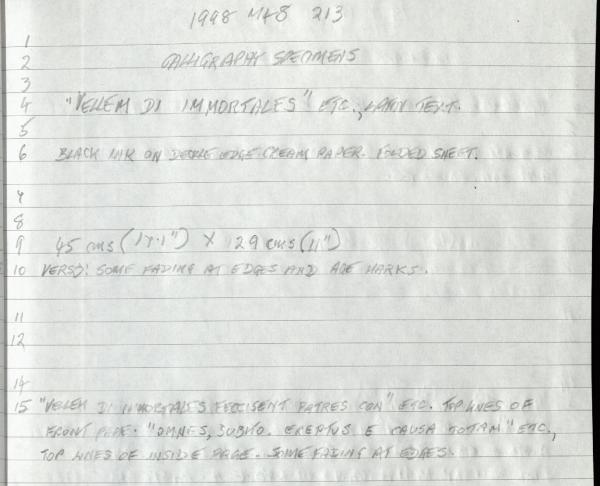 1998 M+8 213
1
2 CALLIGRAPHY SPECIMENS
3
4 "VELLEM DI IMMORTALES" ETC., LATIN TEXT.
5
6 BLACK INK ON DECKLE EDGE CREAM PAPER. FOLDED SHEET.
7
8
9 45 cms ( ") X 29 cms (11")
10 VERSO: SOME FADING AT EDGES AND AGE MARKS.
11
12
14
15 "VELLEM DI IMMORTALES FECISSENT PATRES CON" ETC. TOP LINES OF
FRONT PAGE. "OMNES, SUBITO. E CAUSA TOTAM" ETC.,
TOP LINES OF INSIDE PAGE. SOME FADING AT EDGES.